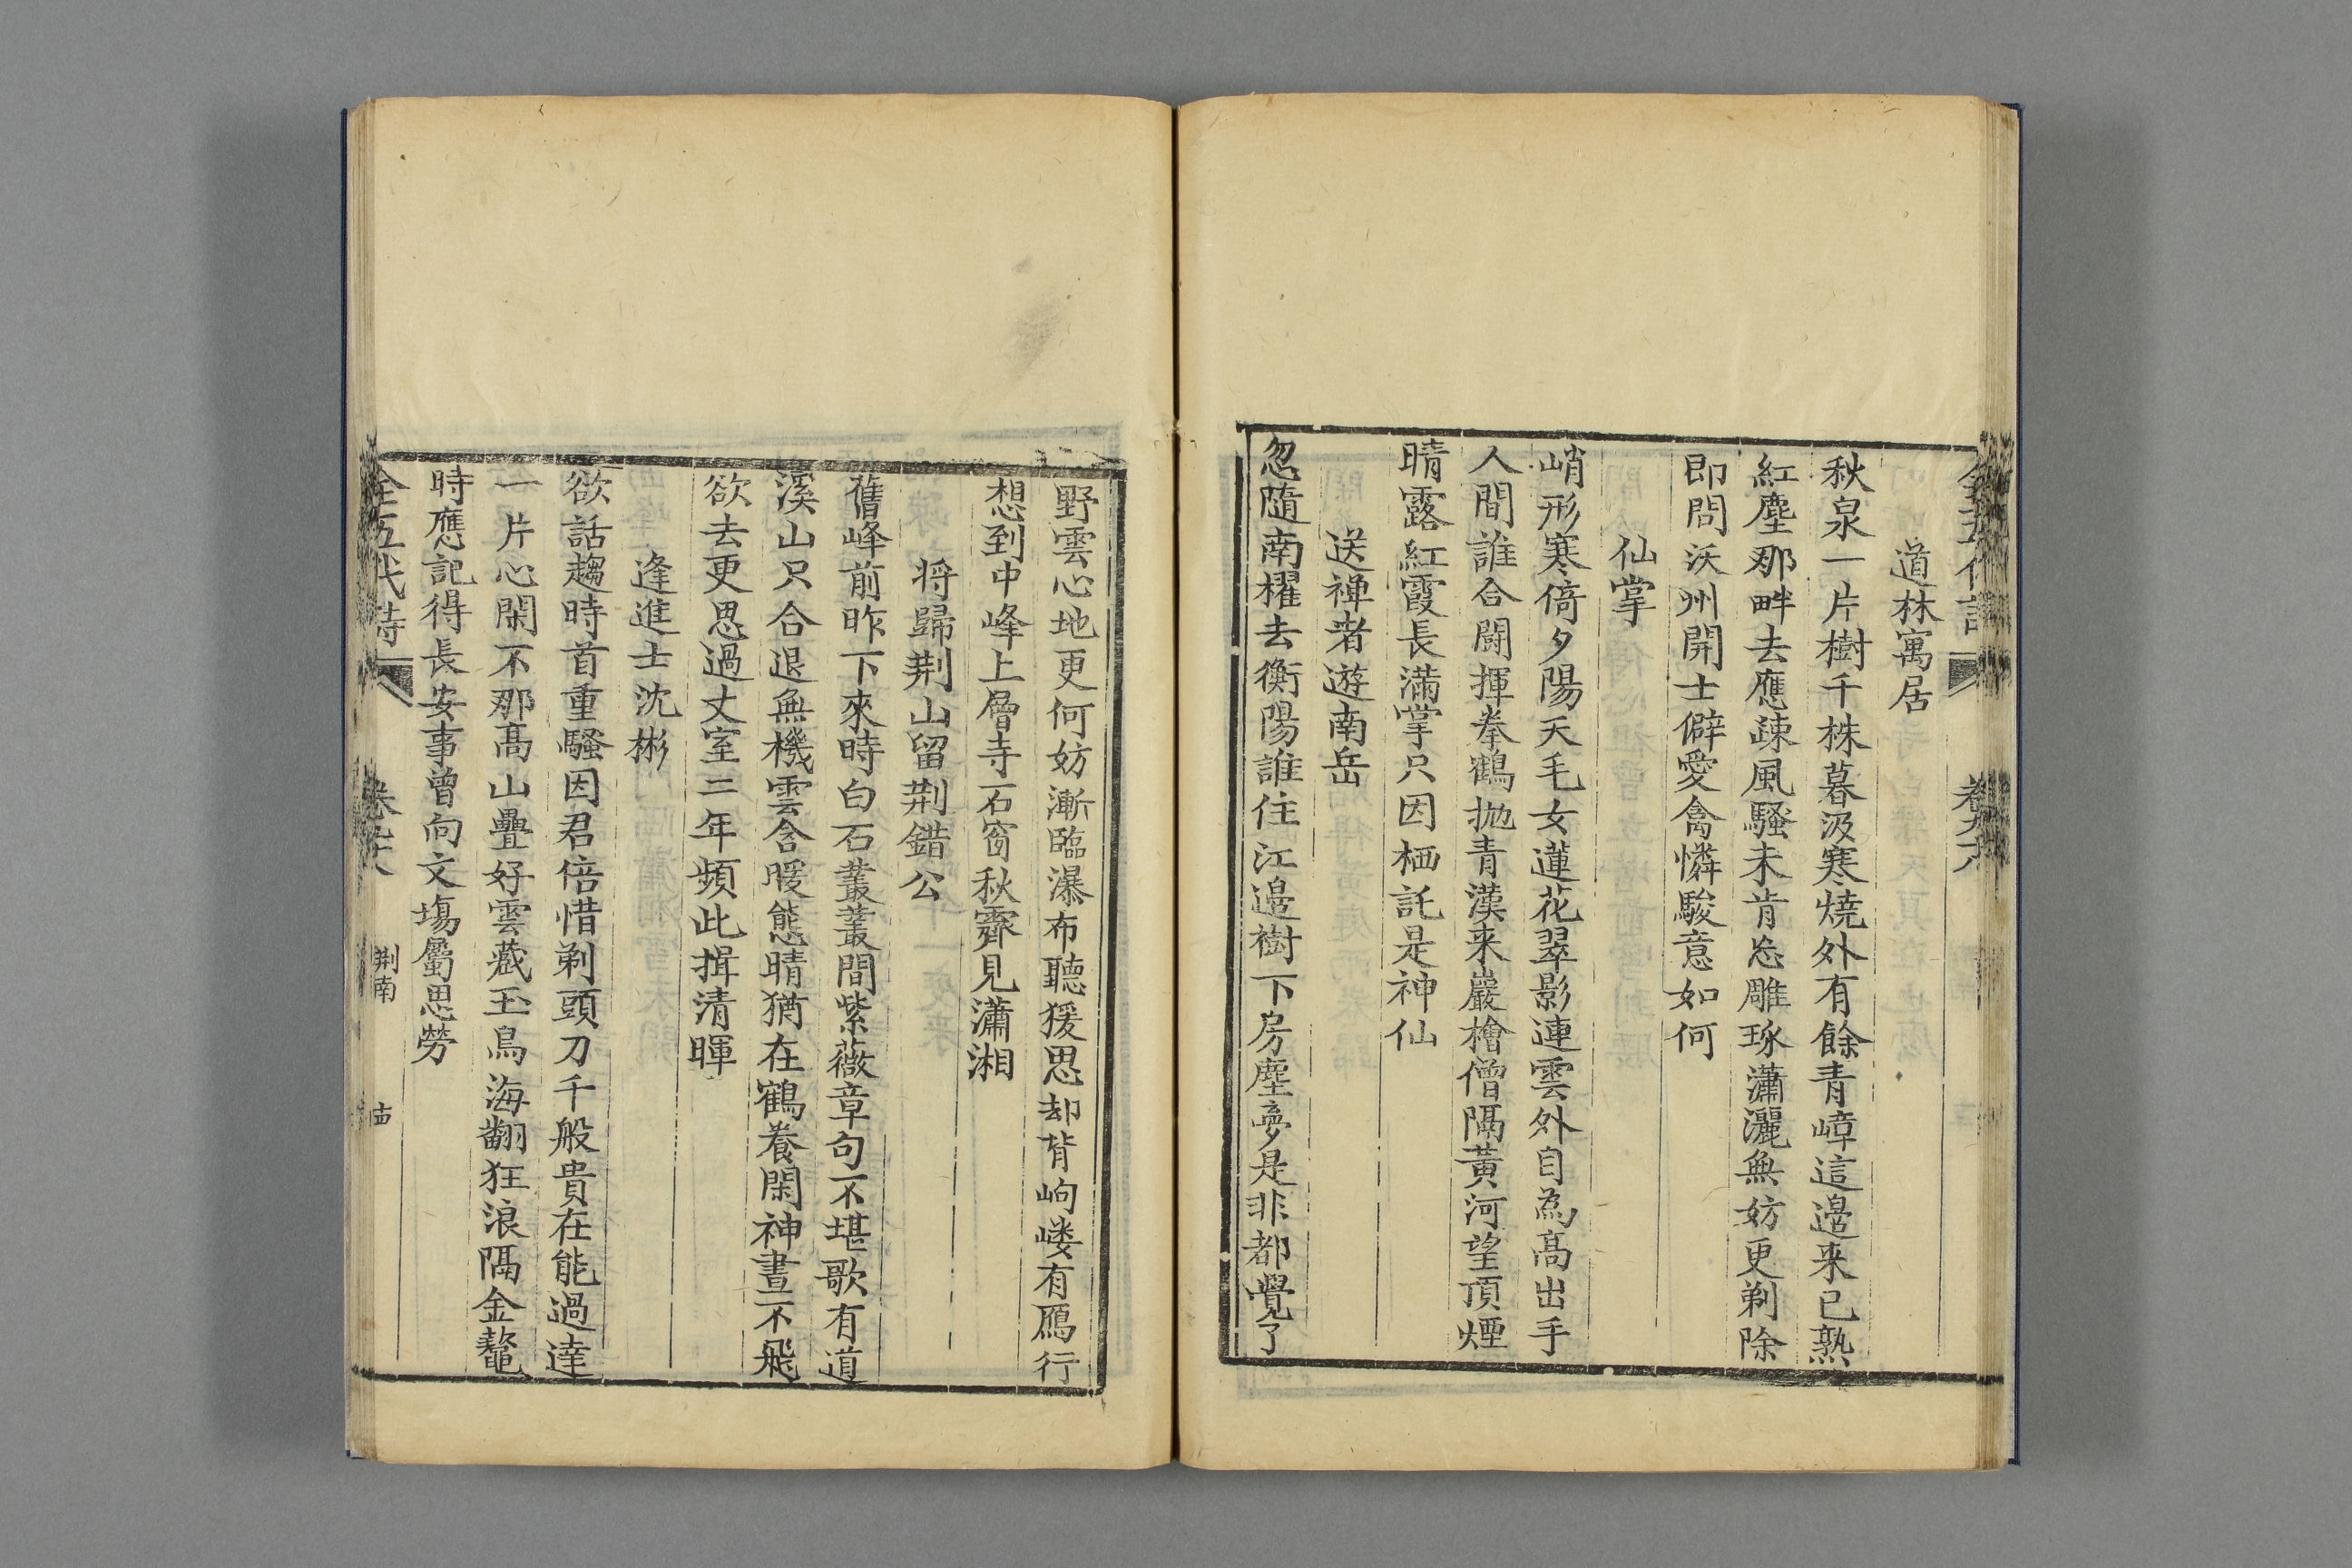 道林寓居
秋泉一片樹千株暮汲寒燒外有餘青嶂這邊来已熟
紅塵那畔去應疎風騷未肯忘雕琢瀟灑無妨更剃除
即問沃州開士僻愛禽憐駿意如何
仙掌
峭形寒倚夕陽天毛女蓮花翠影連雲外自為高出手
人間誰合鬪揮拳鶴拋青漢来巖檜僧隔黃河望頂煙
晴露紅霞長滿掌只因栖託是神仙
送禅者遊南岳
忽隨南櫂去衡陽誰住江邉樹下房塵夢是非都覺了
野雲心地更何妨漸臨瀑布聽猨思却背岣嶁有鴈行
想到中峰上層寺石窗秋霽見瀟湘
将歸荆山留荆錯公
舊峰前昨下來時白石叢叢間紫薇章句不堪歌有道
溪山只合退無機雲含暖態晴猶在鶴養閑神晝不飛
欲去更思過丈室二年頻此揖清暉
逢進士沈彬
欲話趨時首重騷因君倍惜剃頭刀千般貴在能過達
一片心閑不那高山疊好雲藏玉鳥海翻狂浪隔金鼇
時應記得長安事曾向文場屬思勞
全五代詩
荆南